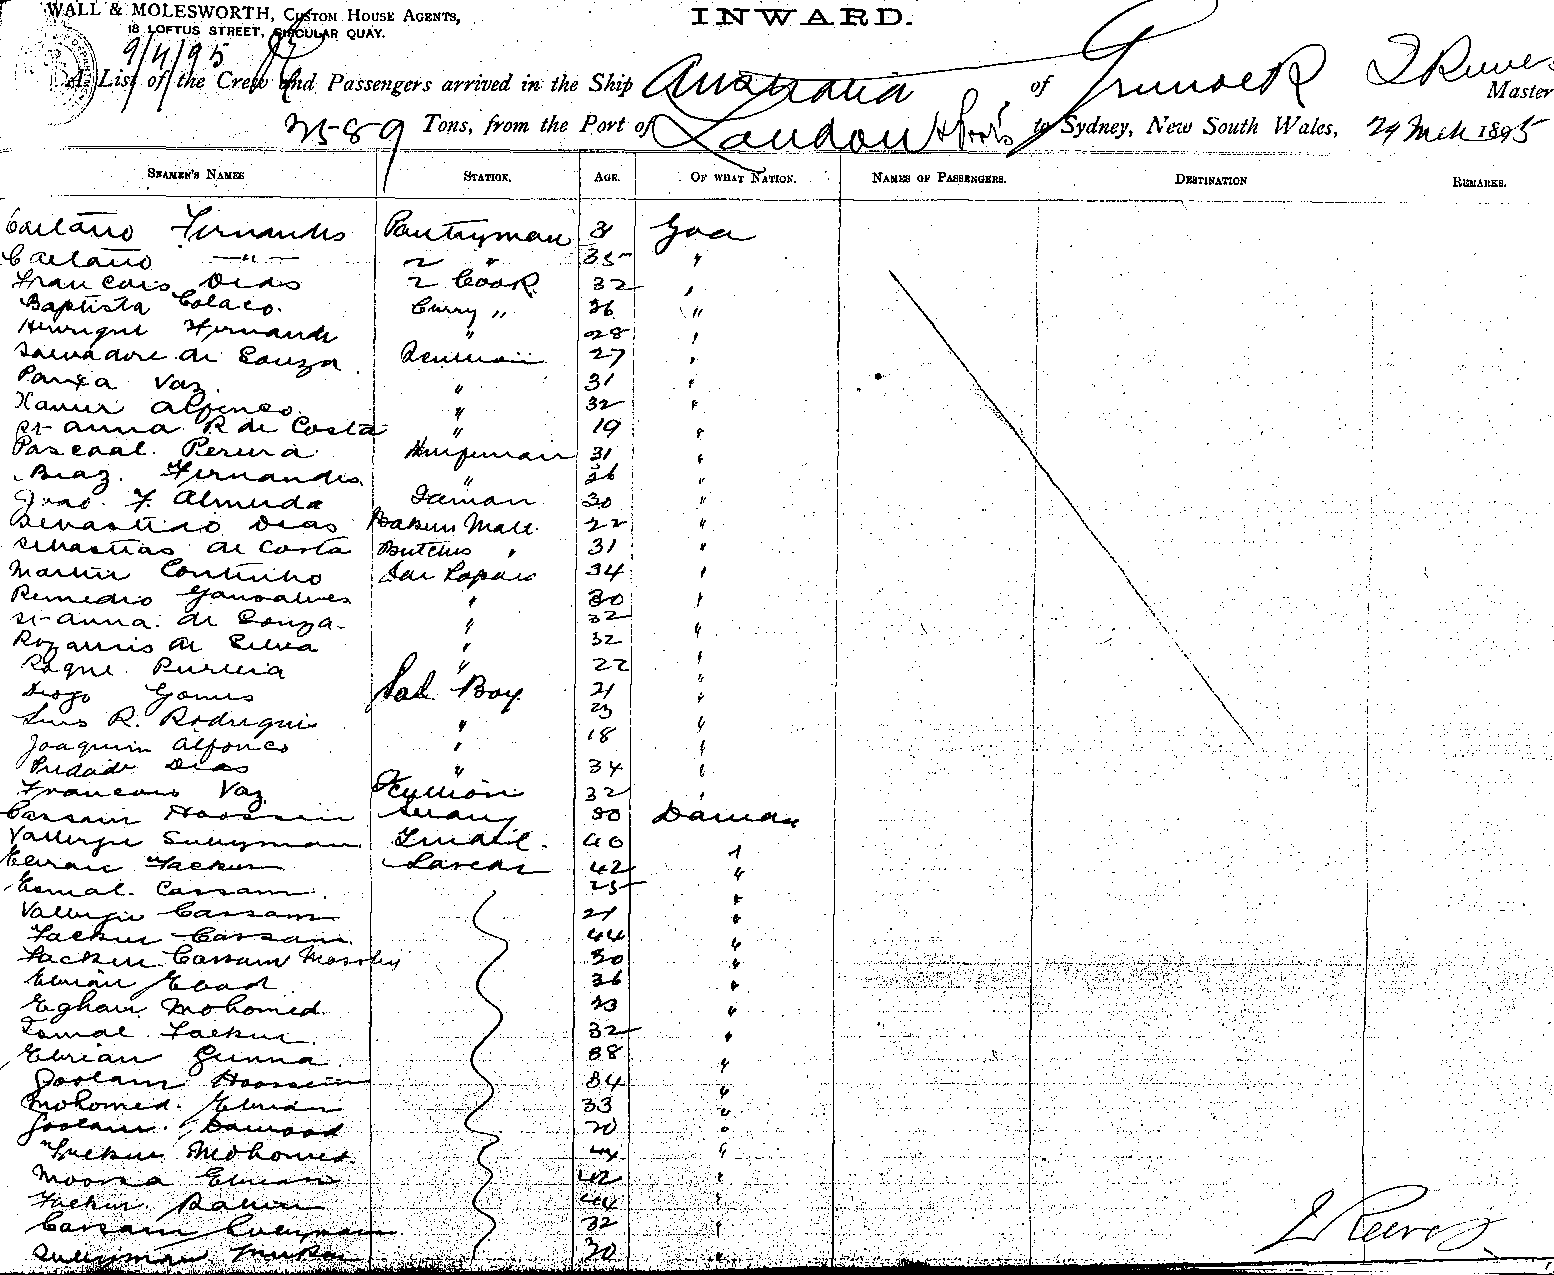 WALL & MOLESWORTH, Custom House Agents,
18 LOFTUS STREET, CIRCULAR QUAY.
INWARD.
9/4/95
A List of the Crew and Passengers arrived in the Ship Australia of Greenock Reeves Master
Tons, from the Port of London & Ports to Sydney, New South Wales, 1895
Seamen's Names Station. Age. Of what Nation. Names of Passengers. Destination Remarks.
Caetano Fernandes Pantryman 31 Goa
Caetano —"— 2 " 35 "
Francois Dias 2 Cook 32 "
Baptista Colaco. Curry " 26 "
Henrique Fernandes " 28 "
Salvadore de Souza 27 "
Vaz 31 "
Xavier Alfonco " 32 "
St Anna R de Costa " 19 "
Pascoal Pereira 31 "
Braz. Fernandes " 26 "
Joao. F. Almeida 30 "
Sebastiao Dias Bakers Mate. 22 "
Sebastiao de Costa Butchers " 31 "
Martin Coutinho 34 "
Remedio Gonsalves " 30 "
St Anna. de Souza. " 32 "
de Silva " 32 "
Roque Pereira " 22 "
Diogo Gomes Boy 21 "
Luis R. Rodrigues " 23 "
Joaquim Alfonco " 18 "
Piedade Dias " 34 "
Francois Vaz 32 "
Cassam Hoossein Serang 30 Daman
Vallerjee Suleyman Tindal. 40 "
Ebrai Fackur Lascar 42 "
Esmal. Cassam. 25 "
Vallerjee Cassam 21 "
Fackur Cassam. 44 "
Fackur Cassam 30 "
Ebrai 36 "
Mohomed. 23 "
Esmal Fackur. 32 "
Ebrai 38 "
Goolam Hoossein 34 "
Mohomed. Ebrai 33 "
Goolam Dawood 20 "
Fackur Mohomed. 44 "
Moosa Ebrai 42 "
Fackur 44 "
Cassam Suleyman 32 "
Suleyman 30 "
J Reeves